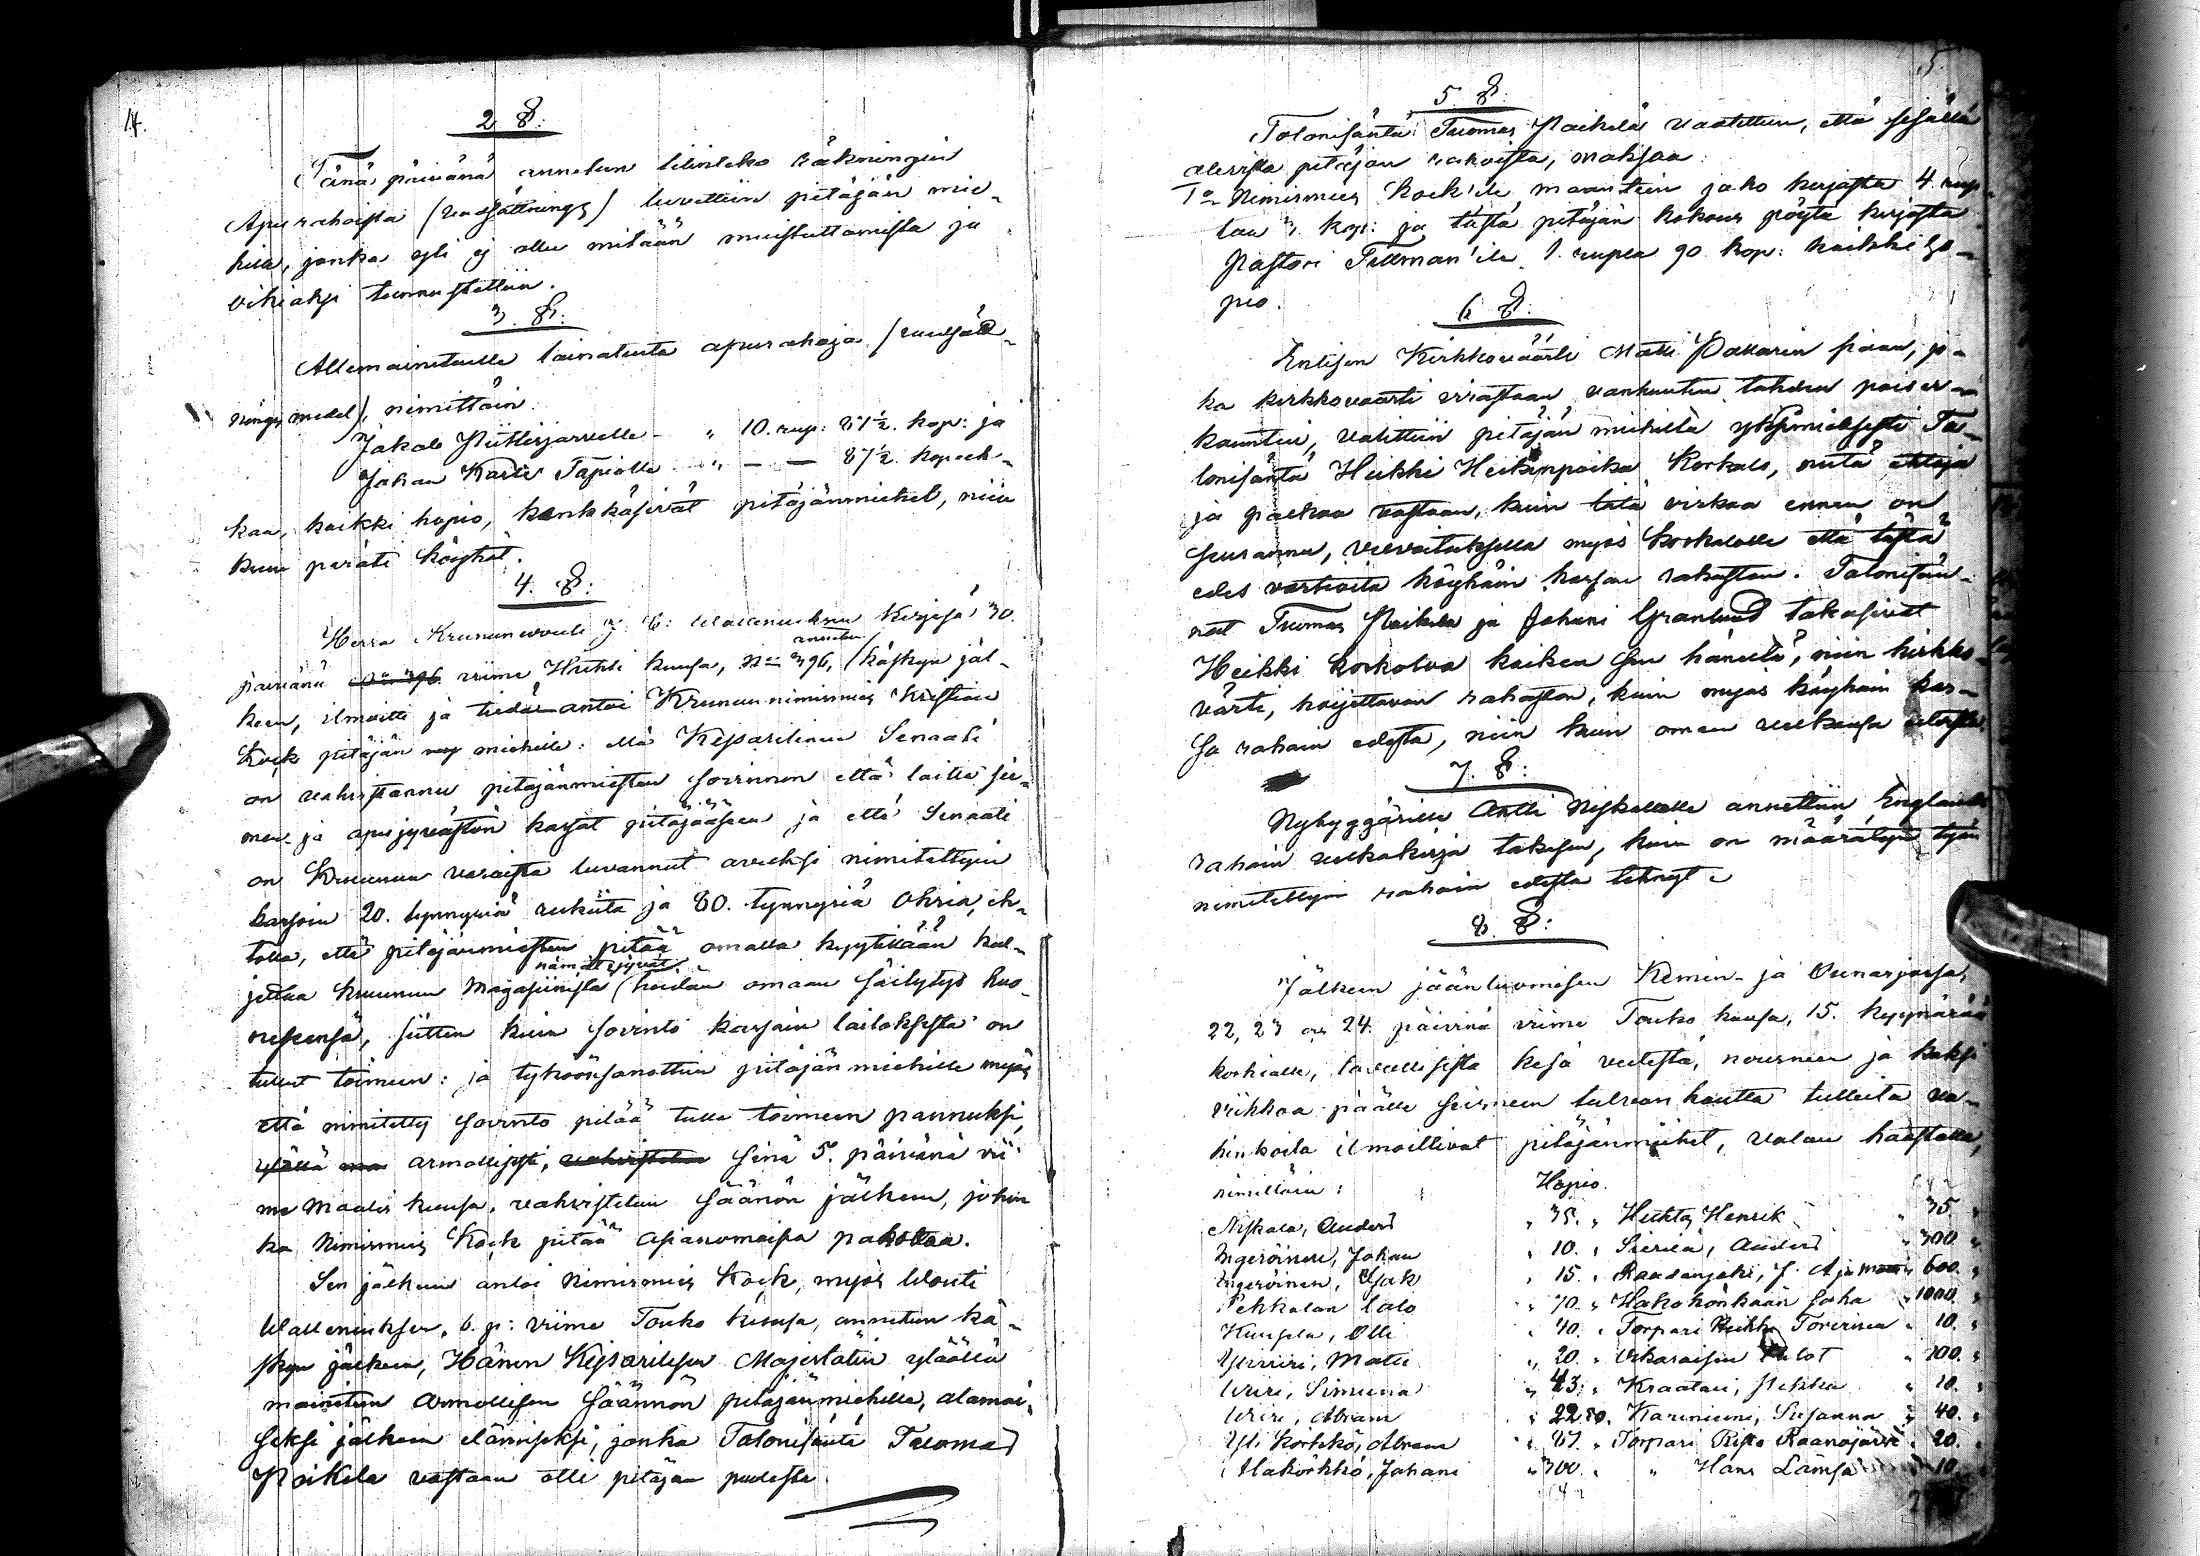 4.
2 §:
Tänä päivänä annetun tilinteko räkningin
Apurahoista (undsättnings) luvettiin pitäjän mie-
hille, jonka yli ej ollu mitään muistuttamista ja
oikiaksi tunnustettiin.
3. §:
Allemainituille lainatuita apurahoja (undsätt-
nings medel), nimittäin
Jakob Niittyjärvelle - " 10. rup: 87½. kop: ja
Johan Karls Tapiolle " — — 87½. kopeek-
kaa, kaikki hopio, pitäjänmiehet, niin
kuin peräti köyhät.
4. §:
Herra Krununvouti
päivänä viime Huhti kuusa, No 396, annetun käskyn jäl-
keen, ilmoitti ja tiedon antoi Krunun nimismies Kristian
Kock pitäjän miehille: että Keisarilinen Senaati
on vahvistannu pitäjänmiesten sovinnon että laitta sie-
men ja apu jyvästön karsat pitäjääseen ja että Senaati
on Kruunun varoista luvannut avuksi nimitettyin
karsoin 20. tynnyriä rukiita ja 80. tynnyriä Ohria, eh-
tolla, että pitäjänmiesten pitää omalla kyytillään kul-
jettaa kruunun Magasiinista nämät jyvät heidän omaan säilytys huo-
neseensa, sitten kuin sovinto karsain laitoksesta on
tullut toimeen: ja tyköösanottiin pitäjän miehille myös
että nimitetty sovinto pitää tulla toimeen pannuksi,
armollisesti, sinä 5. päivänä vii-
me Maalis kuusa, vahvistetun säänön jälkeen, johon
ka Nimismies Kock pitää asianomaisia pakottaa.
Sen jälkeen antoi Nimismies Kock, myös Wouti
Walleniuksen, 6. p: viime Touko kuusa, annetun kä-
skyn jälkeen, Hänen Keisarilisen Majestätin ylläällä
mainitun Armollisen säännön pitäjänmiehille, alamai-
seksi jälkeen elämiseksi, jonka Talonisäntä Tuomas
Poikela vastaan otti pitäjän puolesta.
5.
5 §:
Talonisäntä Tuomas Poikela vaatittiin, että sisällä
olevista pitäjän rahoista, maksaa:
1o Nimismies Kock'ile maantien jako kirjasta 4. rup-
laa " kop: ja tästä pitäjän kokous pöytä kirjasta
Pastori Tillman'ile 1. rupla 90 kop: kaikki ho-
pio.
6 §:
Entisen Kirkkoväärti Matti Pallarin sijaan, jo-
ka kirkkovaarti virastaan vanhuuten tähden pois er-
kaantui, valittiin pitäjän miehiltä yksimielisesti Ta-
lonisäntä Heikki Heikinpoika Korkalo, mitä ehtoja
ja palkaa vastaan, kuin tätä virkaa ennen on
seurannu, velvoituksella myös Korkalolle että tästä
edes vartioita köyhäin karsan rahastan. Talonisän-
nät Tuomas Poikela ja Johani Granlund takasivat
Heikki Korkaloa kaiken sen häneltä, niin kirkko-
värti, hoijettavan rahaston, kuin myös köyhäin kar-
sa rahain edestä, niin kuin oman velkansa edestä.
7. §:
Nybyggärille Antti Niskalalle annettiin Englandi
rahain velkakirja takasen, kuin on määrätyn työn
nimitettyin rahain edestä tehnyt.
8. §:
Jälkeen jään luomisen Kemin- ja Ounasjoesa,
22, 23 24. päivinä viime Touko kuusa, 15. kyynärää
korkialle, tavallisesta kesä vedestä, nousneen ja kaksi
viikkoa päälle seisneen tulvan kautta tulleita va-
hinkoita ilmoittivat pitäjänmiehet, valan haastolla,
nimittäin: Hopio.
Niskala, Anders " 35. " Huhta, Henrik " 35 "
Ingeröinen, Johan " 10. " Sierilä, Anders " 300 "
Ingeröinen, Isak " 15. " Raudanjoki, J. " 600. "
Pehkolan talo " 70. " Hakokönkään saha " 1000. "
Kuusela, Olli " 40. " Torpari Heikki Torvinen " 10. "
Yliriiri, Matti " 20. " Vikaraisen " 100. "
Uriri, Simuna " 43. " Kraatari, Pekka " 10. "
Uriri, Abram " 22.50. Karinieni, Susanna " 40. "
Yli Körkkö, Abram " 87. " Torpari Risto Raanojärvi " 20. "
Alakörkkö, Johani " 300. " " Hans Lämsä " 10 "